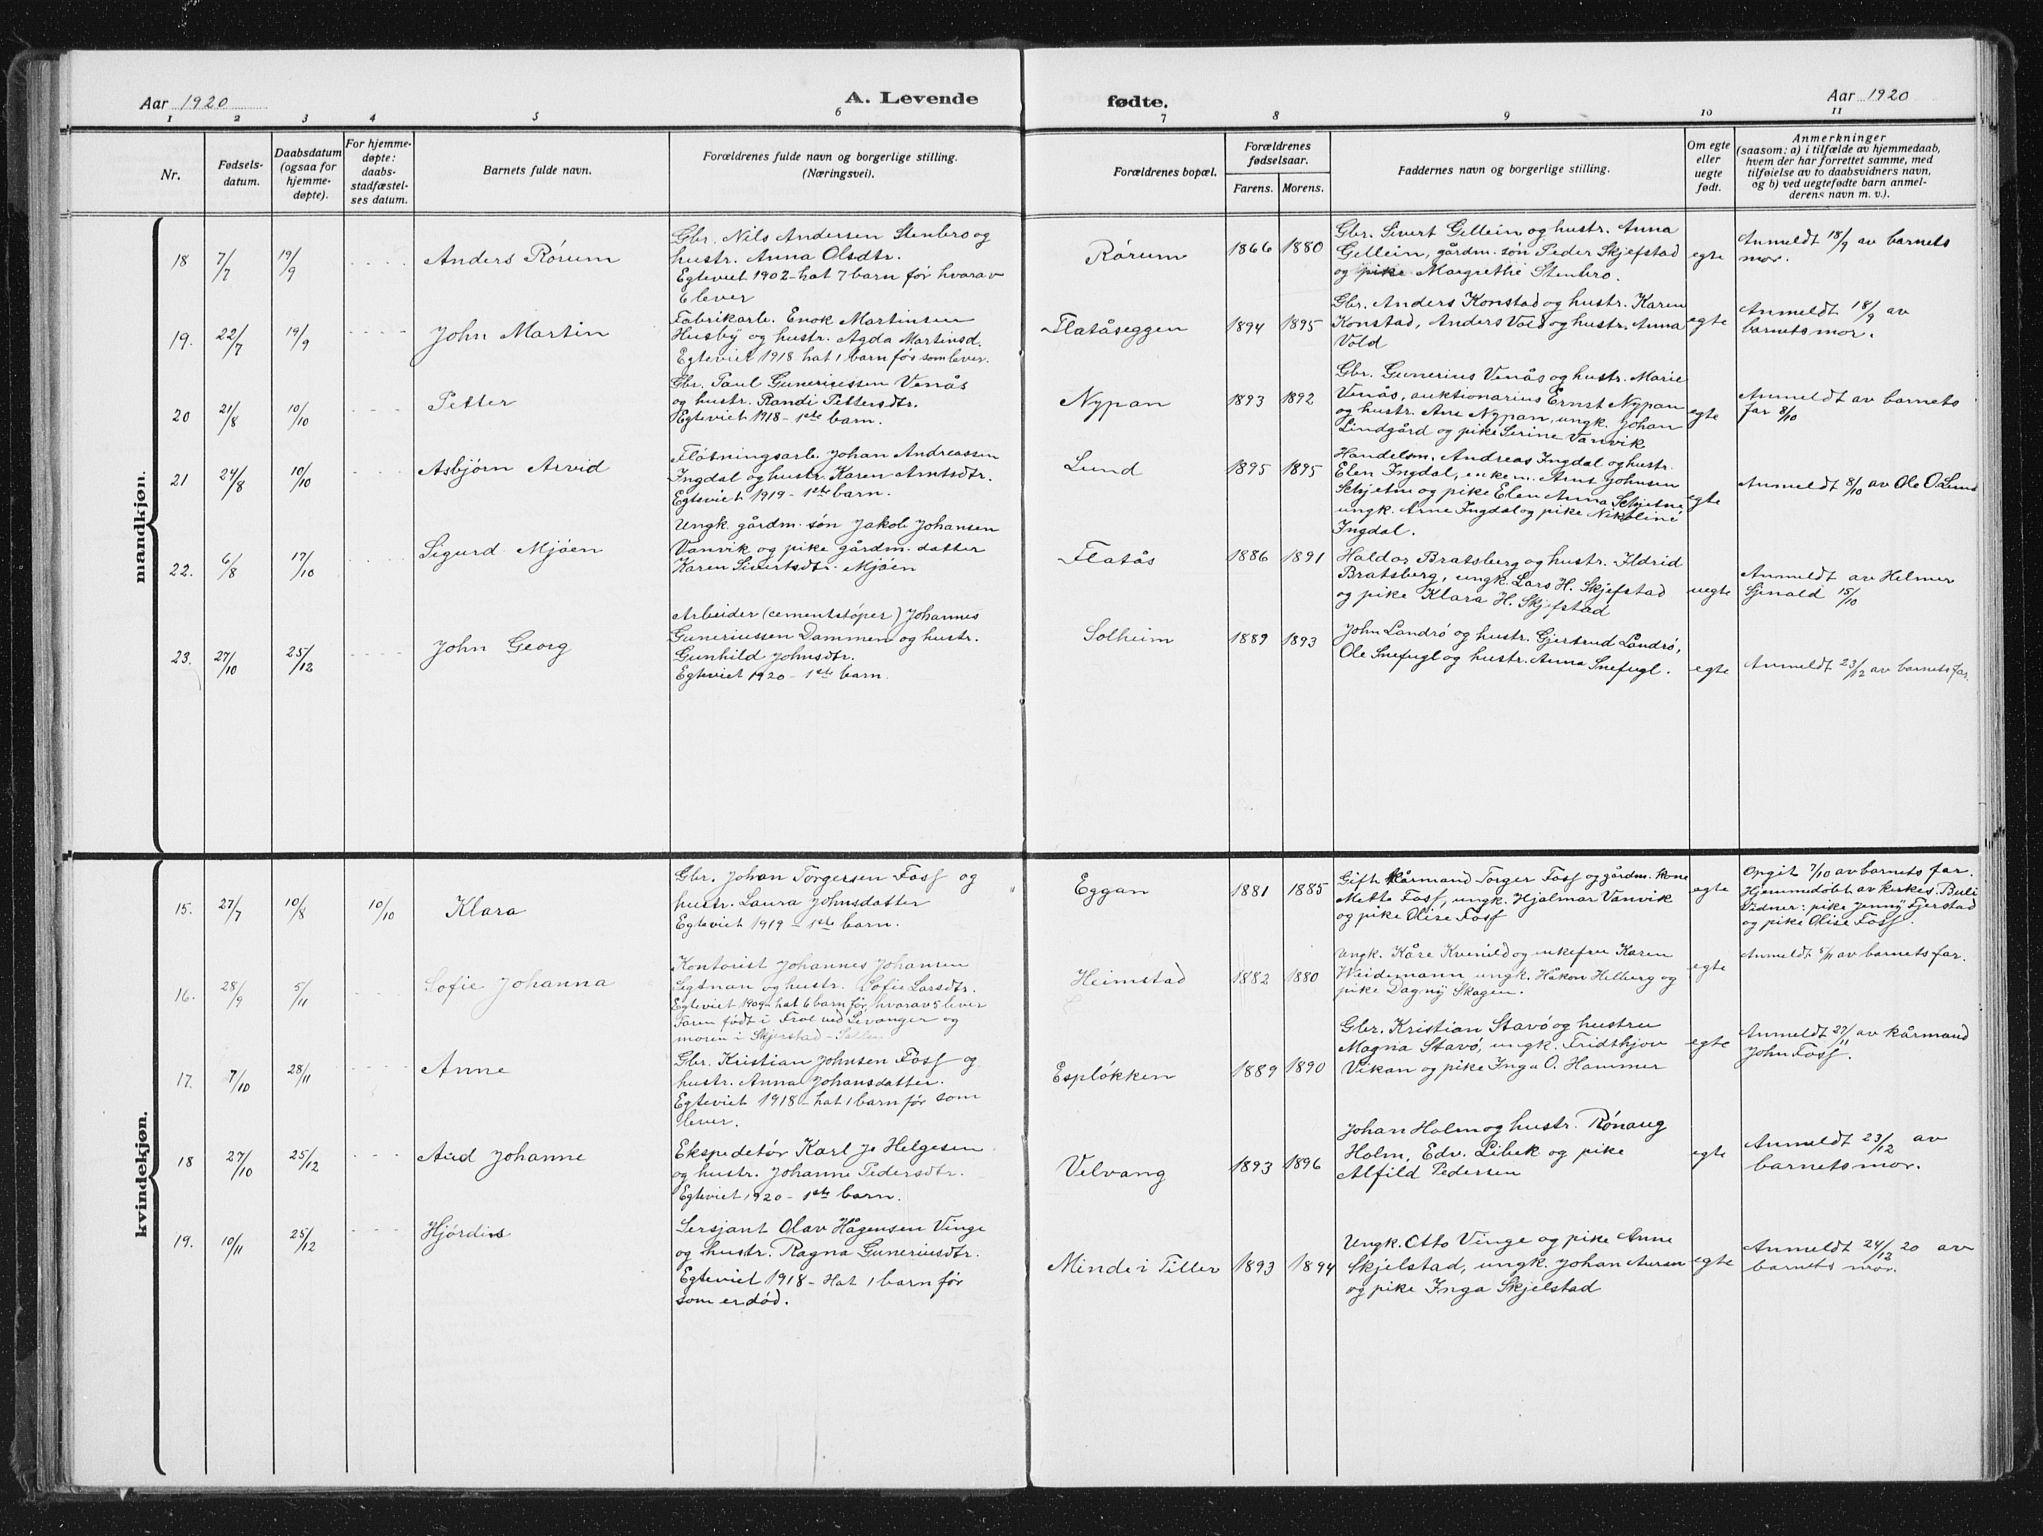 Aar 1920
A. Levende
fødte.
Aar 1920
1 2 3 4 5 6 7 8 9 10 11
Nr.
Fødsels-
datum.
Daabsdatum
(ogsaa for
hjemme-
døpte).
For hjemme-
døpte:
daabs-
stadfæstel-
ses datum.
Barnets fulde navn.
Forældrenes fulde navn og borgerlige stilling.
(Næringsvei).
Forældrenes bopæl.
Forældrenes
fødselsaar.
Farens. Morens.
Faddernes navn og borgerlige stilling.
Om egte
eller
uegte
født.
Anmerkninger
(saasom: a) i tilfælde av hjemmedaab,
hvem der har forrettet samme, med
tilføielse av to daabsvidners navn,
og b) ved uegtefødte barn anmel-
derens navn m. v.).
mandkjøn.
18 7/7 19/9 Anders Rørum
Gbr. Nils Andersen Stenbro og
hustr. Anna Olsdtr.
Egteviet 1902 - hat 7 barn før hvorav
6 lever
Rørum 1866 1880
Gbr. Sivert Gellein og hustr. Anna
Gellein, gårdm. søn Peder Skjefstad
og pike Margrethe Stenbro.
egte
Anmeldt 18/9 av barnets
mor.
19. 22/7 19/9 John Martin
Fabrikarb. Enok Martinsen
Husby og hustr. Agda Martinsd.
Egteviet 1918 hat 1 barn før som lever.
Flatåseggen 1894 1895
Gbr. Anders Konstad og hustr. Karen
Konstad, Anders Vold og hustr. Anna
Vold
egte
Anmeldt 18/9 av
barnets mor.
20 21/8 10/10 Petter
Gbr. Paul Guneriussen Venås
og hustr. Randi Pettersdtr.
Egteviet 1918 - 1ste barn.
Nypan 1893 1892
Gbr. Gunerius Venås og hustr. Marie
Venås, auktionarius Ernst Nypan
og hustr. Ane Nypan, ungk. Johan
Lindgård og pike Serine Vanvik
egte
Anmeldt av barnets
far 8/10
21 24/8 10/10 Asbjørn Arvid
Fløtningsarb. Johan Andreassen
Ingdal og hustr. Karen Arntsdtr.
Egteviet 1919 - 1ste barn.
Lund 1895 1895
Handelsm. Andreas Ingdal og hustr.
Elen Ingdal, enkem. Arnt Johnsen
Skjetne og pike Elen Anna Skjetne
ungk. Arne Ingdal og pike Nikoline
Ingdal.
egte
Anmeldt 8/10 av Ole O. Lund
22. 6/8 17/10 Sigurd Mjøen
Ungk. gårdm. søn Jakob Johansen
Vanvik og pike gårdm. datter
Karen Sivertsdtr. Mjøen
Flatås 1886 1891
Haldor Bratsberg og hustr. Ildrid
Bratsberg, ungk. Lars H. Skjefstad
og pike Klara H. Skjefstad
uegte
Anmeldt av Helmer
15/10
23. 27/10 25/12 John Georg
Arbeider (cementstøper) Johannes
Guneriussen Dammen og hustr.
Gunhild Johnsdtr.
Egteviet 1920 - 1ste barn.
Solheim 1889 1893
John Landrø og hustr. Gjertrud Landrø,
Ole Snefugl og hustr. Anna Snefugl.
egte
Anmeldt 23/12 av barnets far.
kvindekjøn.
15. 27/7 10/8 10/10 Klara
Gbr. Johan Torgersen Foss og
hustr. Laura Johnsdatter
Egteviet 1919 - 1ste barn.
Eggan 1881 1885
Gift kårmand Torger Foss og gårdm. kone
Mette Foss, ungk. Hjalmar Vanvik
og pike Olise Foss
egte
Opgit 7/10 av barnets far.
Hjemmedøbt av kirkes. Buli
Vidner: pike Jenny Fjerstad
og pike Olise Foss.
16. 28/9 5/11 Sofie Johanna
Kontorist Johannes Johansen
Segtnan og hustr. Sofie Larsdtr.
Egteviet 1909 hat 6 barn før, hvorav 5 lever
Faren født i Frol ved Levanger og
moren i Skjerstad - Salten
Heimstad 1882 1880
Ungk. Kåre Kvenild og enkefru Karen
Weidemann ungk. Håkon Helberg og
pike Dagny Skagen.
egte
Anmeldt 5/11 av barnets far.
17. 7/10 28/11 Anne
Gbr. Kristian Johnsen Foss og
hustr. Anna Johansdatter.
Egteviet 1918 - hat 1 barn før som
lever.
Espløkken 1889 1890
Gbr. Kristian Stavø og hustru
Magna Stavø, ungk. Fridthjov
Vikan og pike Inga O. Hammer
egte
Anmeldt 27/11 av kårmand
John Foss.
18 27/10 25/12 Aud Johanne
Ekspeditør Karl J. Helgesen
og hustr. Johanne Pedersdtr.
Egteviet 1920 - 1ste barn.
Velvang 1893 1896
Johan Holm og hustr. Rønaug
Holm, Edv. Libek og pike
Alfild Pedersen
egte
Anmeldt 23/12 av
barnets mor.
19. 10/11 25/12 Hjørdis
Sersjant Olav Hågensen Vinge
og hustr. Ragna Guneriusdtr.
Egteviet 1918 - Hat 1 barn før
som er død.
Minde i Tiller 1893 1894
Ungk. Otto Vinge og pike Anne
Skjelstad, ungk. Johan Aunan
og pike Inga Skjelstad
egte
Anmeldt 24/12 20 av
barnets mor.